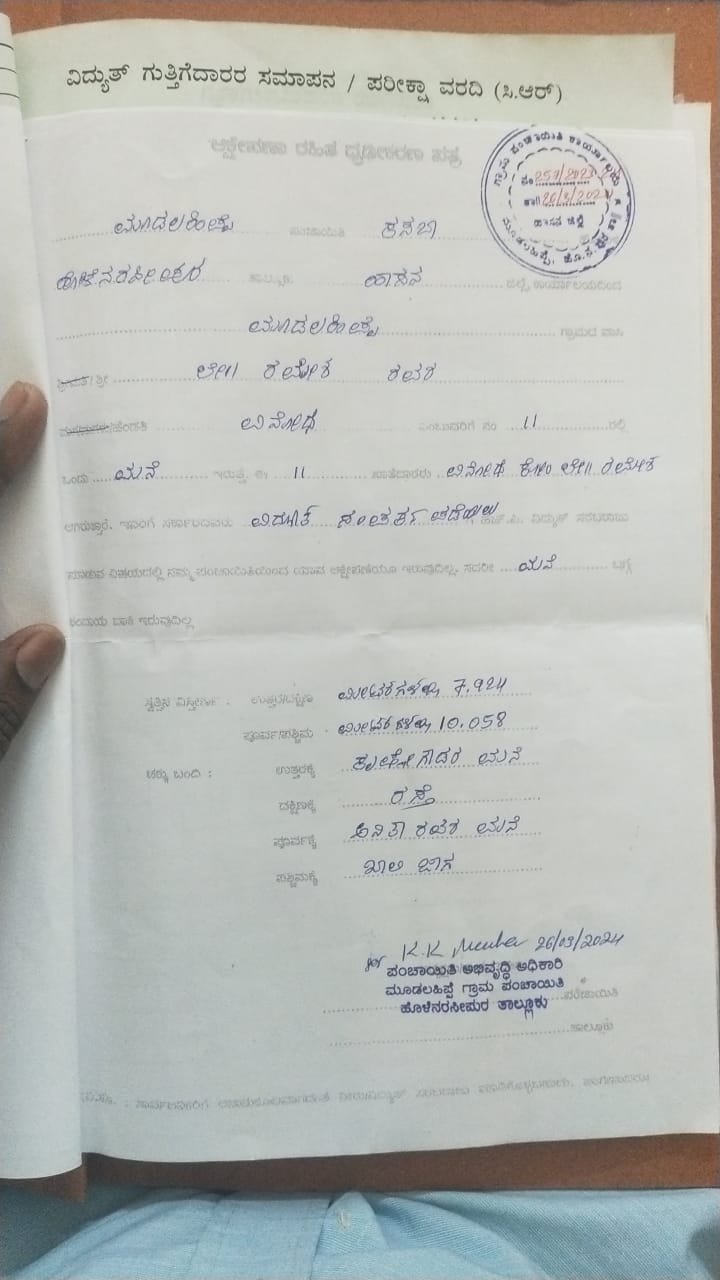 ವಿದ್ಯುತ್ ಗುತ್ತಿಗೆದಾರರ ಸಮಾಪನ / ಪರೀಕ್ಷಾ ವರದಿ (ಸಿ.ಆರ್)
ಆಕ್ಷೇಪಣಾ ರಹಿತ ದೃಢೀಕರಣ ಪತ್ರ
ಗ್ರಾಮ ಪಂಚಾಯಿತಿ ಕಾರ್ಯಾಲಯ
ನಂ 257/2023
ತಾ॥ 26/3/2024
ಹಾಸನ ಜಿಲ್ಲೆ
ಮೂಡಲಹಿಪ್ಪೆ ಪಂಚಾಯಿತಿ ಕಸಬಾ
ತಾಲ್ಲೂಕು ಹಾಸನ ಜಿಲ್ಲೆ, ಕಾರ್ಯಾಲಯದಿಂದ
ಮೂಡಲಹಿಪ್ಪೆ ಗ್ರಾಮದ ವಾಸಿ
ಶ್ರೀಮತಿ/ಶ್ರೀ ಲೇ॥ ರಮೇಶ ರವರ
ವಿನೋಧ ಎಂಬುವರಿಗೆ ನಂ 11 ರಲ್ಲಿ
ಒಂದು ಮನೆ ಇರುತ್ತೆ ಈ 11 ಖಾತೆದಾರರು ವಿನೋಧ ಕೋಂ ಲೇ॥ ರಮೇಶ
ಆಗಿರುತ್ತಾರೆ. ಇವರಿಗೆ ವಿದ್ಯುತ್ ಸಂಪರ್ಕ ಪಡೆಯಲು ವಿದ್ಯುತ್ ಸರಬರಾಜು
ಮಾಡುವ ವಿಷಯದಲ್ಲಿ ನಮ್ಮ ಪಂಚಾಯಿತಿಯಿಂದ ಯಾವ ಆಕ್ಷೇಪಣೆಯೂ ಇರುವುದಿಲ್ಲ. ಸದರೀ ಮನೆ
ಕಂದಾಯ ಬಾಕಿ ಇರುವುದಿಲ್ಲ
ಸ್ವತ್ತಿನ ವಿಸ್ತೀರ್ಣ : ಉತ್ತರ/ದಕ್ಷಿಣ ಮೀಟರಗಳಲ್ಲಿ 7.924
ಪೂರ್ವ/ಪಶ್ಚಿಮ ಮೀಟರಗಳಲ್ಲಿ 10.058
ಚಕ್ಕು ಬಂದಿ : ಉತ್ತರಕ್ಕೆ ಮನೆ
ದಕ್ಷಿಣಕ್ಕೆ ರಸ್ತೆ
ಪೂರ್ವಕ್ಕೆ ಅನಿತಾ ರವರ ಮನೆ
ಪಶ್ಚಿಮಕ್ಕೆ ಖಾಲಿ ಜಾಗ
for K.K 26/03/2024
ಪಂಚಾಯಿತಿ ಅಭಿವೃದ್ಧಿ ಅಧಿಕಾರಿ
ಮೂಡಲಹಿಪ್ಪೆ ಗ್ರಾಮ ಪಂಚಾಯಿತಿ
ಪಂಚಾಯಿತಿ
ಹೊಳೆನರಸೀಪುರ ತಾಲ್ಲೂಕು
ತಾಲ್ಲೂಕು